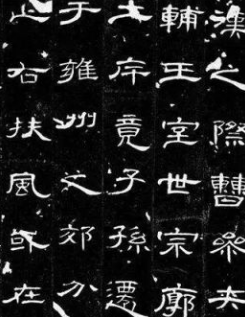 漢之際曹參夾
輔王室世宗廓
土斥竟子孫遷
于雍州之郊分
止右扶風或在